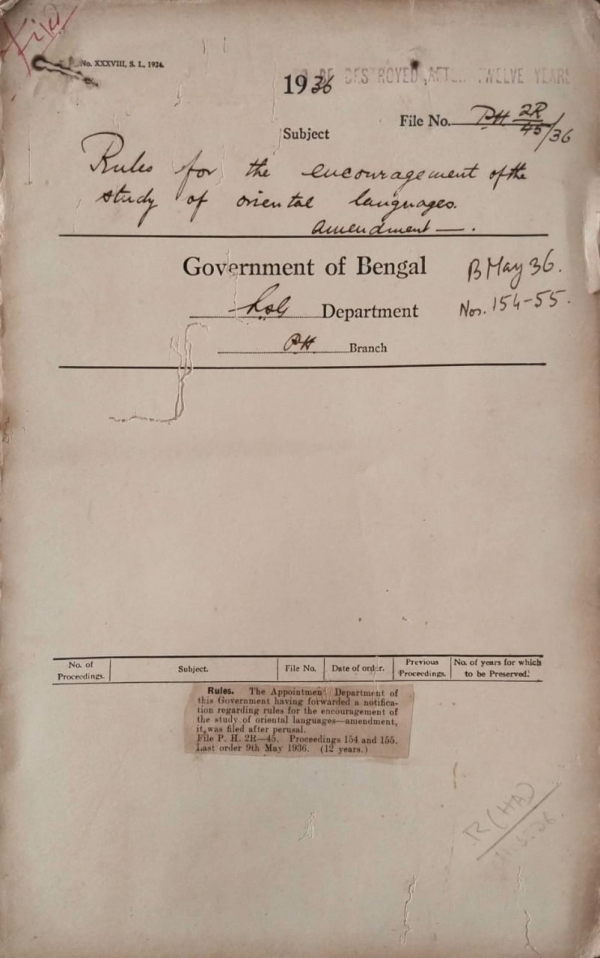 No. XXXVIII, S. I., 1924.
BE DESTROYED AFTER TWELVE YEARS
1936
File No. P.H. 2R/45/36
Subject
Rules for the encouragement of the
study of oriental languages.
amendment —.
Government of Bengal
B May 36.
Nos. 154-55.
LSG Department
P.H. Branch
No. of Proceedings. Subject. File No. Date of order. Previous Proceedings. No. of years for which to be Preserved.
Rules. The Appointment Department of
this Government having forwarded a notifica-
tion regarding rules for the encouragement of
the study of oriental languages—amendment,
it was filed after perusal.
File P. H. 2R—45. Proceedings 154 and 155.
Last order 9th May 1936. (12 years.)